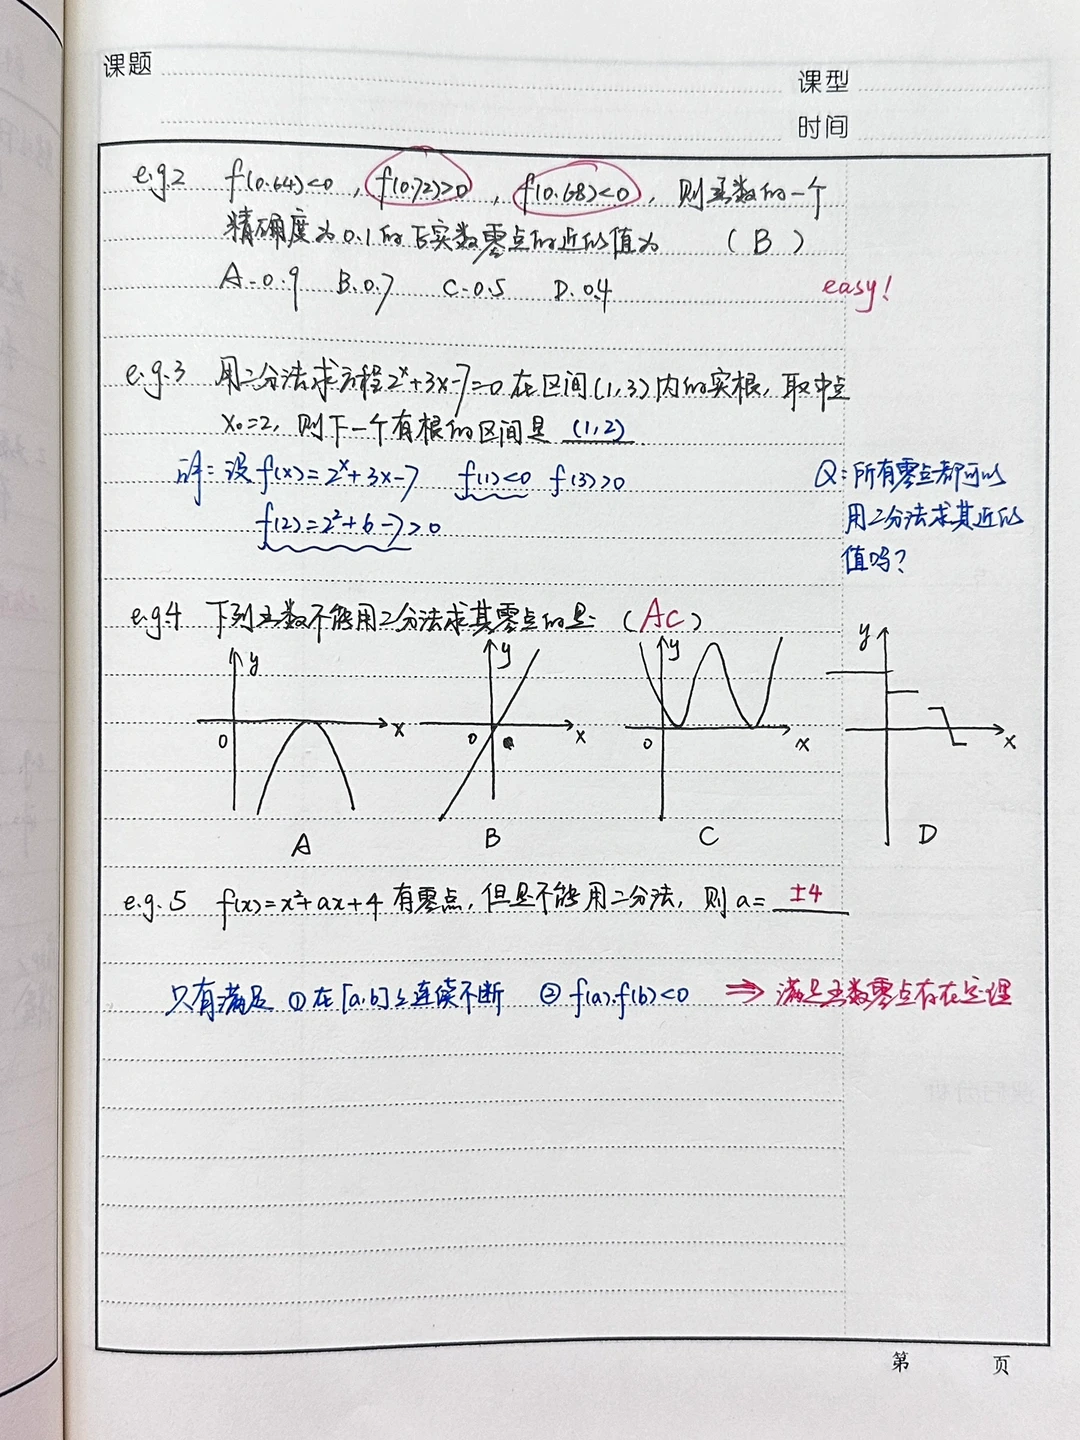 课题
课型
时间
e.g.2 f(0.64)<0, f(0.72)>0, f(0.68)<0, 则函数的一个
精确度为0.1的正实数零点的近似值为 (B)
A.0.9 B.0.7 C.0.5 D.0.4
easy!
e.g.3 用二分法求方程2ˣ+3x-7=0在区间(1,3)内的实根, 取中点
x₀=2, 则下一个有根的区间是 (1,2)
设f(x)=2ˣ+3x-7 f(1)<0 f(3)>0
f(2)=2²+6-7>0
Q:所有零点都可以
用二分法求其近似
值吗?
e.g.4 下列函数不能用二分法求其零点的是: (AC)
y x 0 A
y x 0 B
y x 0 C
y x D
e.g.5 f(x)=x²+ax+4有零点, 但是不能用二分法, 则a= ±4
只有满足 ①在[a.b]上连续不断 ②f(a).f(b)<0 ⇒ 满足函数零点存在定理
第 页